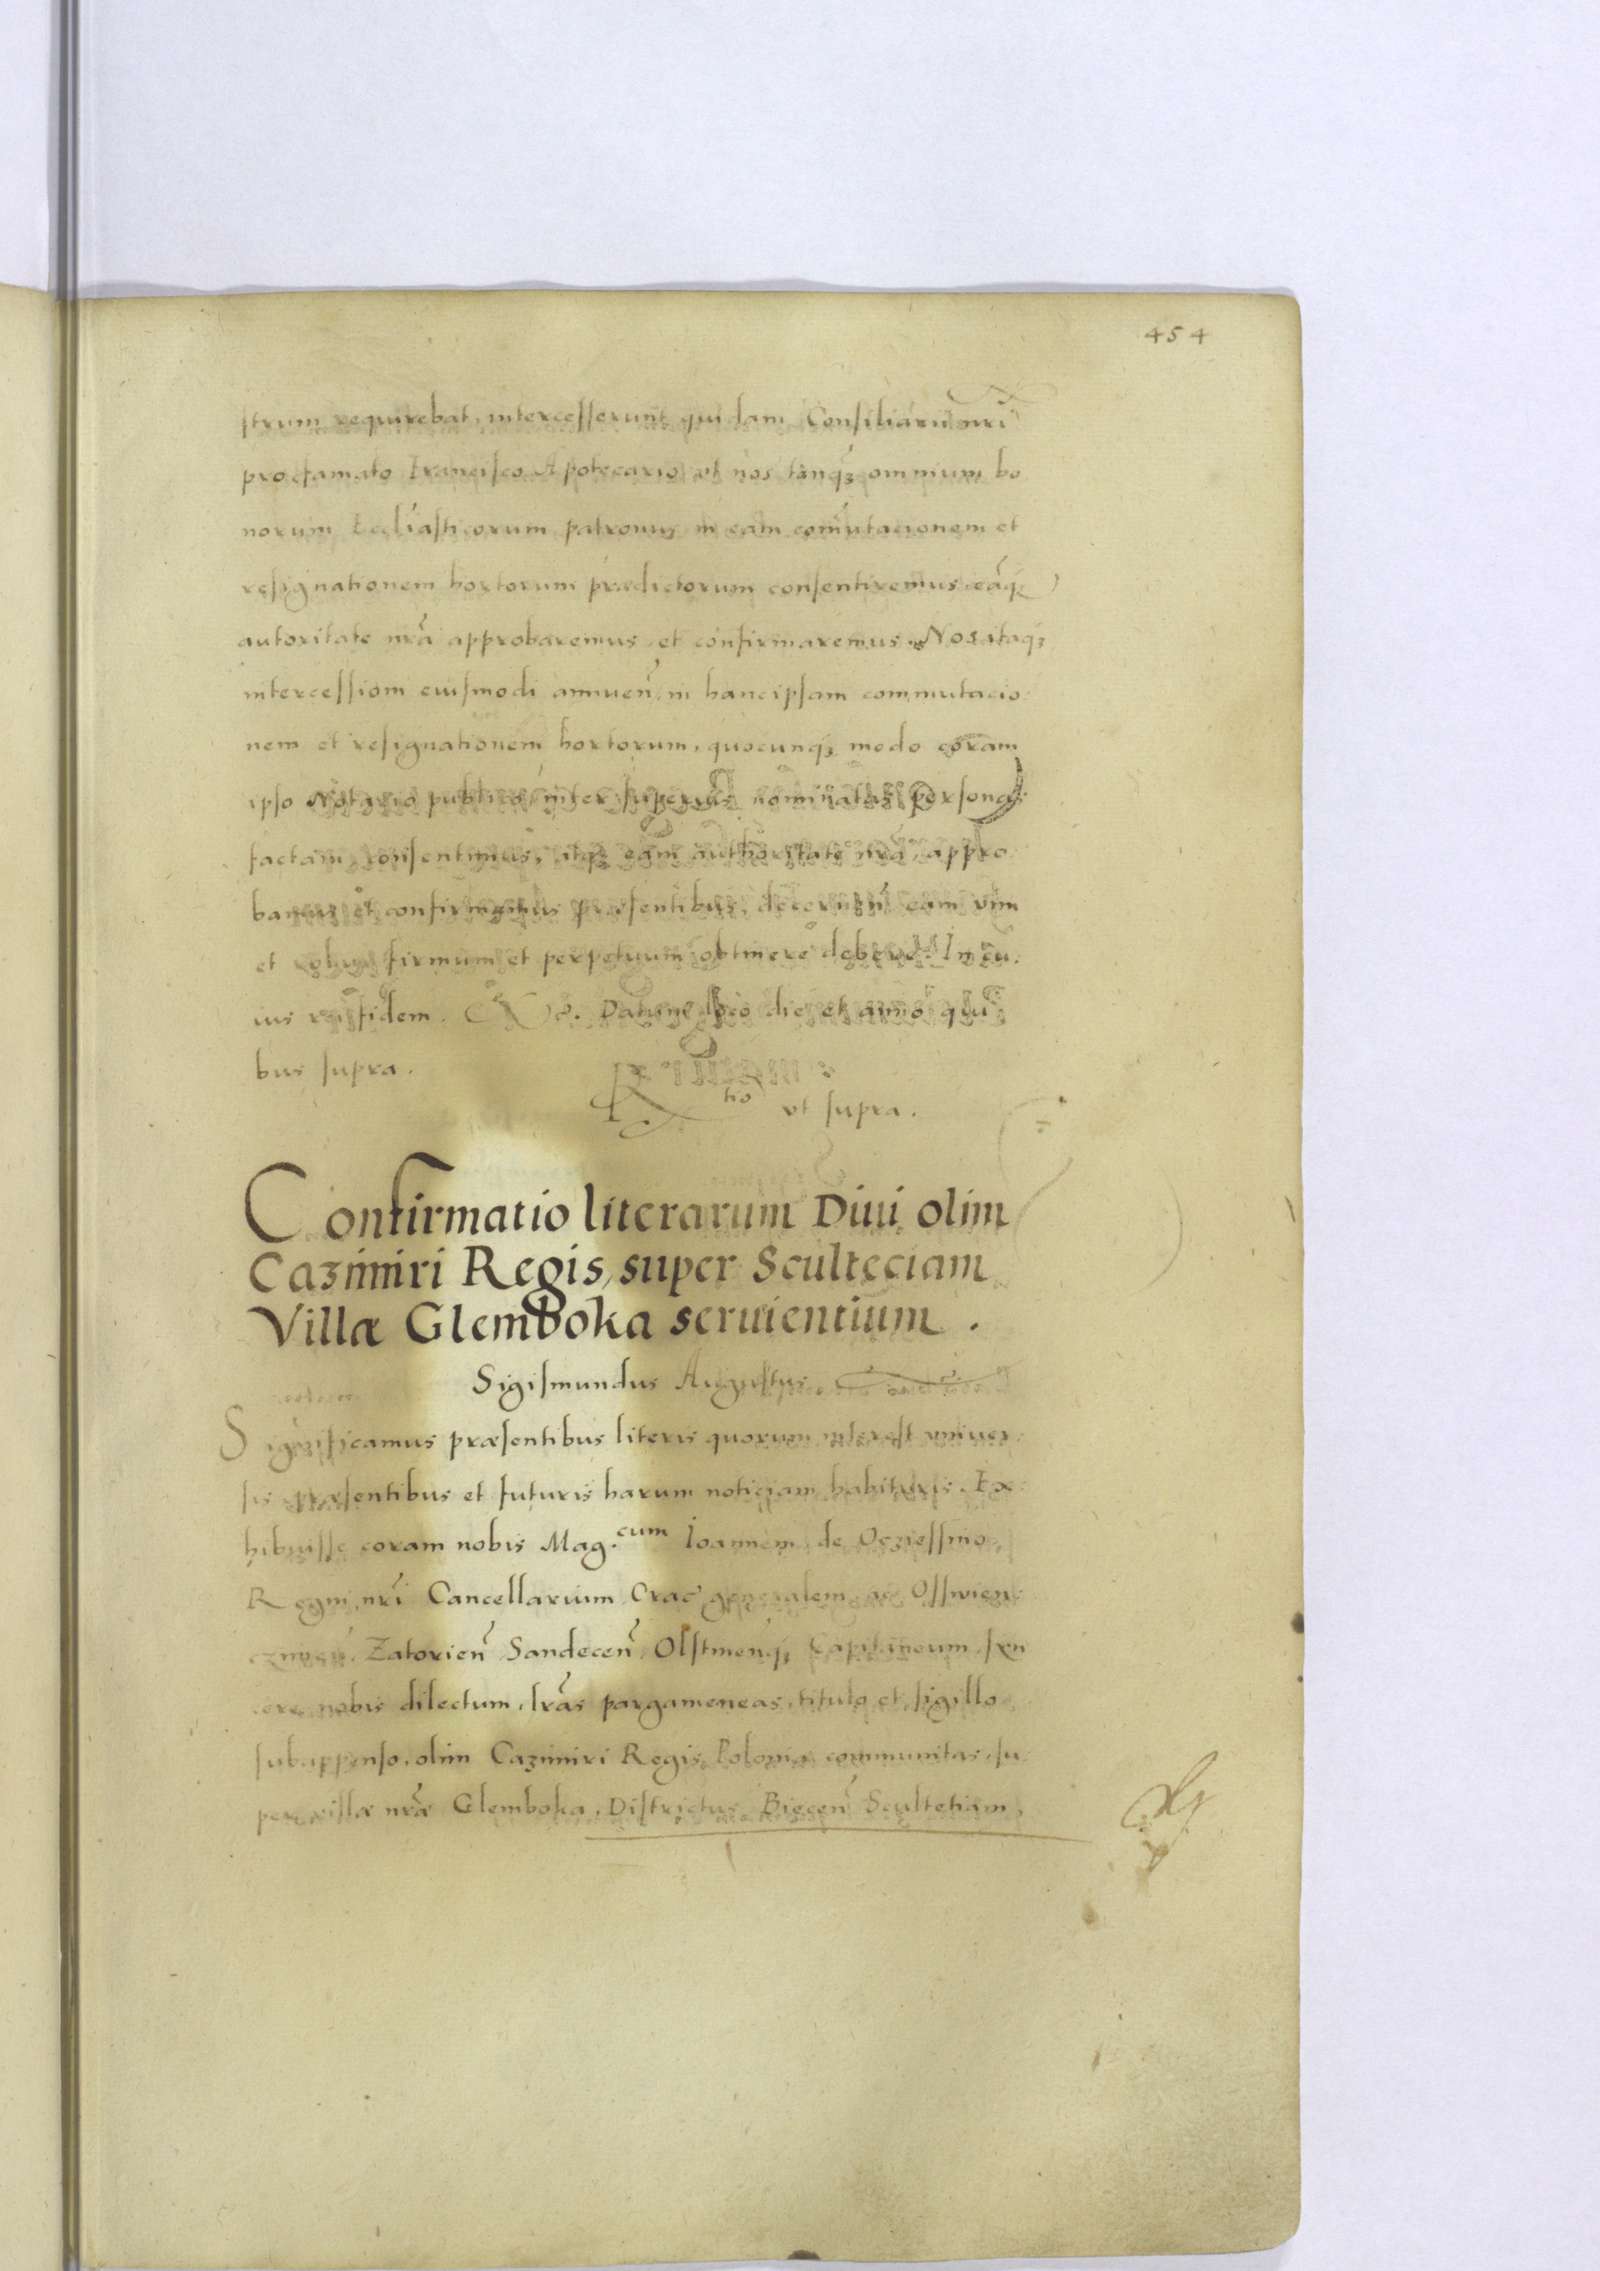 454
strum requirebat, intercesserunt quidam Consiliarii nr̃i
pro famato Francisco Apotecario ut nos tanqꝫ omnium bo
norum Eccl̃iasticorum patronus in eam com̃utacionem et
resignationem hortorum prædictorum consentiremus eãqꝫ
autoritate nr̃a approbaremus et confirmaremus. Nos itaqꝫ
intercessioni eiusmodi annuen̄ in hanc ipsam commutacio
nem et resignationem hortorum, quocunqꝫ modo coram
ipso Notario publico inter superius nominatas personas
factam consentimus, atqꝫ eam authoritate nr̃a appro
bamus et confirmamus præsentibus, decernen̄ eam vim
et robur firmum et perpetuum obtinere debere. In cu
ius rei fidem. Datum loco die et anno qui
bus supra.
R tio ut supra.
Confirmatio literarum Diui olim
Cazimiri Regis, super Sculteciam
Villæ Glemboka seruientium.
Sigismundus Augustus
Significamus præsentibus literis quorum interest vniuer
sis præsentibus et futuris harum noticiam habituris. Ex
hibuisse coram nobis Mag.cum Ioannem de Ocziessino
Regni nr̃i Cancellarium Crac̄ generalem ac Osswien
czimen̄ Zatorien̄ Sandecen̄ Olstinen̄qꝫ Capitaneum, syn
cere nobis dilectum, lr̃as pargameneas, titulo et sigillo
subappenso, olim Cazimiri Regis Poloniæ communitas, su
per villæ nr̃æ Glemboka, Districtus Biecen̄ Scultetiam,